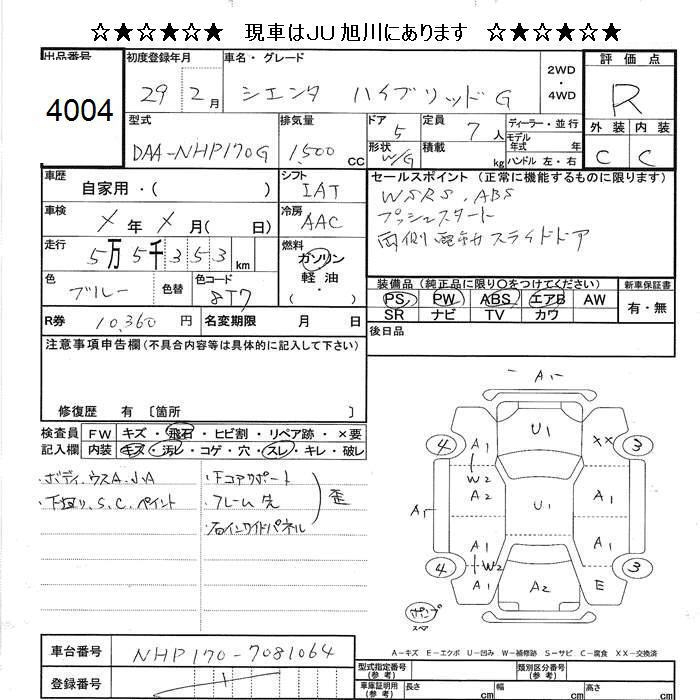 ☆★☆★☆★ 現車はJU旭川にあります ☆★☆★☆★
出品番号
4004
初度登録年月
29 2月
車名・グレード
シエンタ ハイブリッドG
2WD
・
4WD
評価点
R
外装 内装
C C
型式
DAA-NHP170G
排気量
1,500 CC
ドア
5
形状
W/G
定員
7人
積載
kg
ディーラー・並行
モデル
年式 年
ハンドル 左・右
車歴
自家用・( )
シフト
IAT
車検
X年X月( 日)
冷房
AAC
走行
5万5千353km
燃料
ガソリン
・
軽油
・
( )
色
ブルー
色替
色コード
8T7
セールスポイント (正常に機能するものに限ります)
W SRS. ABS
プッシュスタート
両側電動スライドドア
装備品 (純正品に限り○をつけてください)
PS PW ABS エアB AW
SR ナビ TV カワ
新車保証書
有・無
R券 10,360円
名変期限 月 日
後日品
注意事項申告欄(不具合内容等は具体的に記入して下さい)
修復歴 有 〔箇所 〕
検査員
記入欄
FW キズ・飛石・ヒビ割・リペア跡・×要
内装 キズ・汚レ・コゲ・穴・スレ・キレ・破レ
・ボディ.ウスA.J.A
・下廻り.S.C.ペイント
・Fコアサポート
・フレーム先
・右インサイドパネル
歪
A1
U1
4
A1
XX
3
W2
A2
A1
U1
A1
A1
A1
4
W2
A1
A2
E
3
パンク
スペア
A-キズ E-エクボ U-凹み W-補修跡 S-サビ C-腐食 XX-交換済
車台番号
NHP170-7081064
登録番号
型式指定番号
(参考)
類別区分番号
(参考)
車庫証明用
(参考)
長さ cm
幅 cm
高さ cm